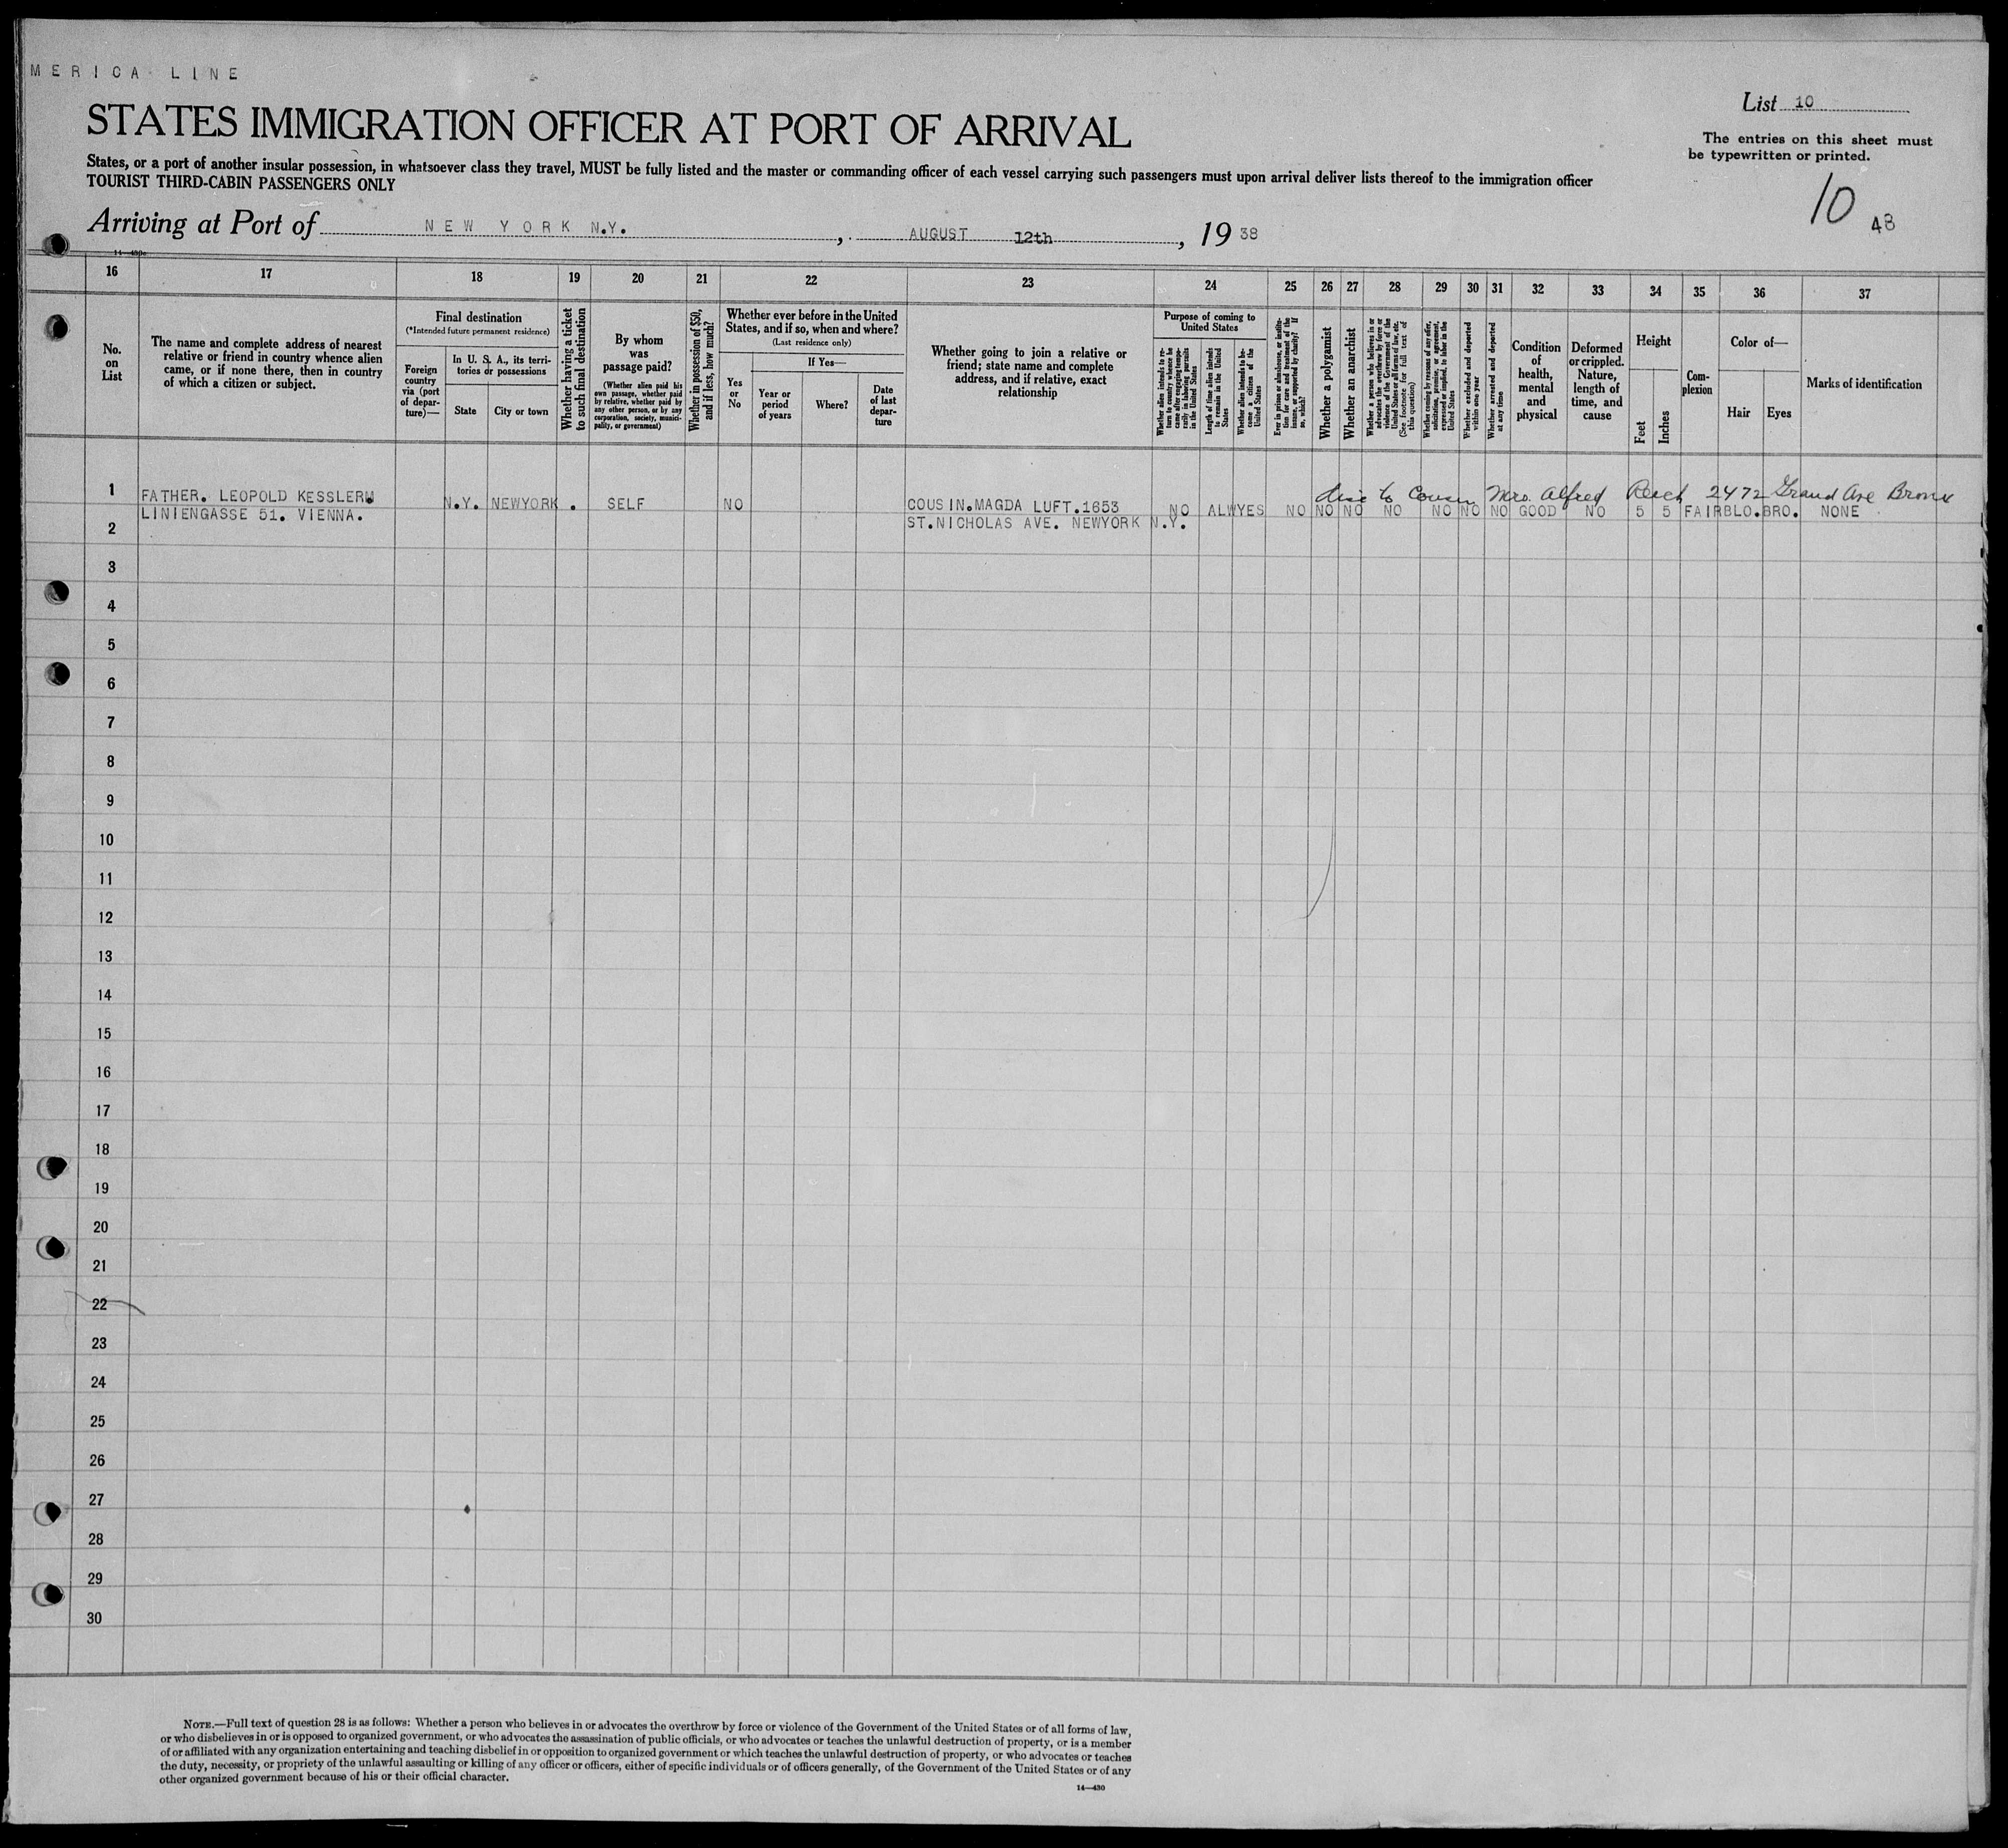 MERICA LINE
STATES IMMIGRATION OFFICER AT PORT OF ARRIVAL
List 10
The entries on this sheet must
be typewritten or printed.
States, or a port of another insular possession, in whatsoever class they travel, MUST be fully listed and the master or commanding officer of each vessel carrying such passengers must upon arrival deliver lists thereof to the immigration officer
TOURIST THIRD-CABIN PASSENGERS ONLY
10 48
Arriving at Port of NEW YORK N.Y. , AUGUST 12th , 19 38
16 17 18 19 20 21 22 23 24 25 26 27 28 29 30 31 32 33 34 35 36 37
No.
on
List
The name and complete address of nearest
relative or friend in country whence alien
came, or if none there, then in country
of which a citizen or subject.
Final destination
(*Intended future permanent residence)
Foreign
country
via (port
of depar-
ture)—
In U. S. A., its terri-
tories or possessions
State
City or town
Whether having a ticket
to such final destination
By whom
was
passage paid?
(Whether alien paid his
own passage, whether paid
by relative, whether paid by
any other person, or by any
corporation, society, munici-
pality, or government)
Whether in possession of $50,
and if less, how much?
Whether ever before in the United
States, and if so, when and where?
(Last residence only)
Yes
or
No
If Yes—
Year or
period
of years
Where?
Date
of last
depar-
ture
Whether going to join a relative or
friend; state name and complete
address, and if relative, exact
relationship
Purpose of coming to
United States
Whether alien intends to re-
turn to country whence he
came after engaging tempo-
rarily in laboring pursuits
in the United States
Length of time alien intends
to remain in the United
States
Whether alien intends to be-
come a citizen of the
United States
Ever in prison or almshouse, or institu-
tion for care and treatment of the
insane, or supported by charity? If
so, which?
Whether a polygamist
Whether an anarchist
Whether a person who believes in or
advocates the overthrow by force or
violence of the Government of the
United States or all forms of law, etc.
(See footnote for full text of
this question)
Whether coming by reasons of any offer,
solicitation, promise, or agreement,
expressed or implied, to labor in the
United States
Whether excluded and deported
within one year
Whether arrested and deported
at any time
Condition
of
health,
mental
and
physical
Deformed
or crippled.
Nature,
length of
time, and
cause
Height
Feet
Inches
Com-
plexion
Color of—
Hair
Eyes
Marks of identification
to Cousin Mrs. Alfred Reich 2472 Grand Ave Bronx
1 FATHER. LEOPOLD KESSLER N.Y. NEWYORK . SELF NO COUSIN.MAGDA LUFT.1653 NO ALW YES NO NO NO NO NO NO NO GOOD NO 5 5 FAIR BLO. BRO. NONE
LINIENGASSE 51. VIENNA. ST.NICHOLAS AVE. NEWYORK N.Y.
2
3
4
5
6
7
8
9
10
11
12
13
14
15
16
17
18
19
20
21
22
23
24
25
26
27
28
29
30
NOTE.—Full text of question 28 is as follows: Whether a person who believes in or advocates the overthrow by force or violence of the Government of the United States or of all forms of law,
or who disbelieves in or is opposed to organized government, or who advocates the assassination of public officials, or who advocates or teaches the unlawful destruction of property, or is a member
of or affiliated with any organization entertaining and teaching disbelief in or opposition to organized government or which teaches the unlawful destruction of property, or who advocates or teaches
the duty, necessity, or propriety of the unlawful assaulting or killing of any officer or officers, either of specific individuals or of officers generally, of the Government of the United States or of any
other organized government because of his or their official character.
14—430